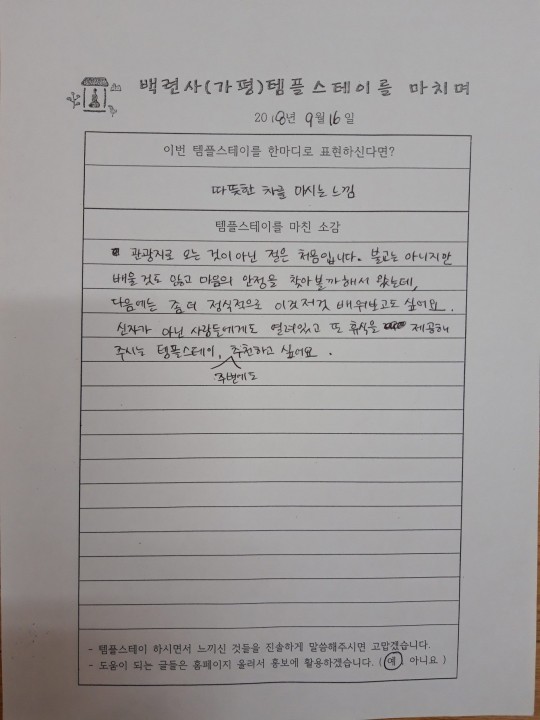 백련사(가평)템플스테이를 마치며
2018년 9월 16일
이번 템플스테이를 한마디로 표현하신다면?
따뜻한 차를 마시는 느낌
템플스테이를 마친 소감
관광지로 오는 것이 아닌 절은 처음입니다. 불교는 아니지만
배울것도 않고 마음의 안정을 찾아볼까해서 왔는데,
다음에는 좀 더 정식적으로 이것저것 배워보고도 싶어요.
신자가 아닌 사람들에게도 열려있고 또 휴식을 제공해
주시는 템플스테이, 추천하고 싶어요.
주변에도
- 템플스테이 하시면서 느끼신 것들을 진솔하게 말씀해주시면 고맙겠습니다.
- 도움이 되는 글들은 홈페이지 올려서 홍보에 활용하겠습니다. ( 예 아니요 )